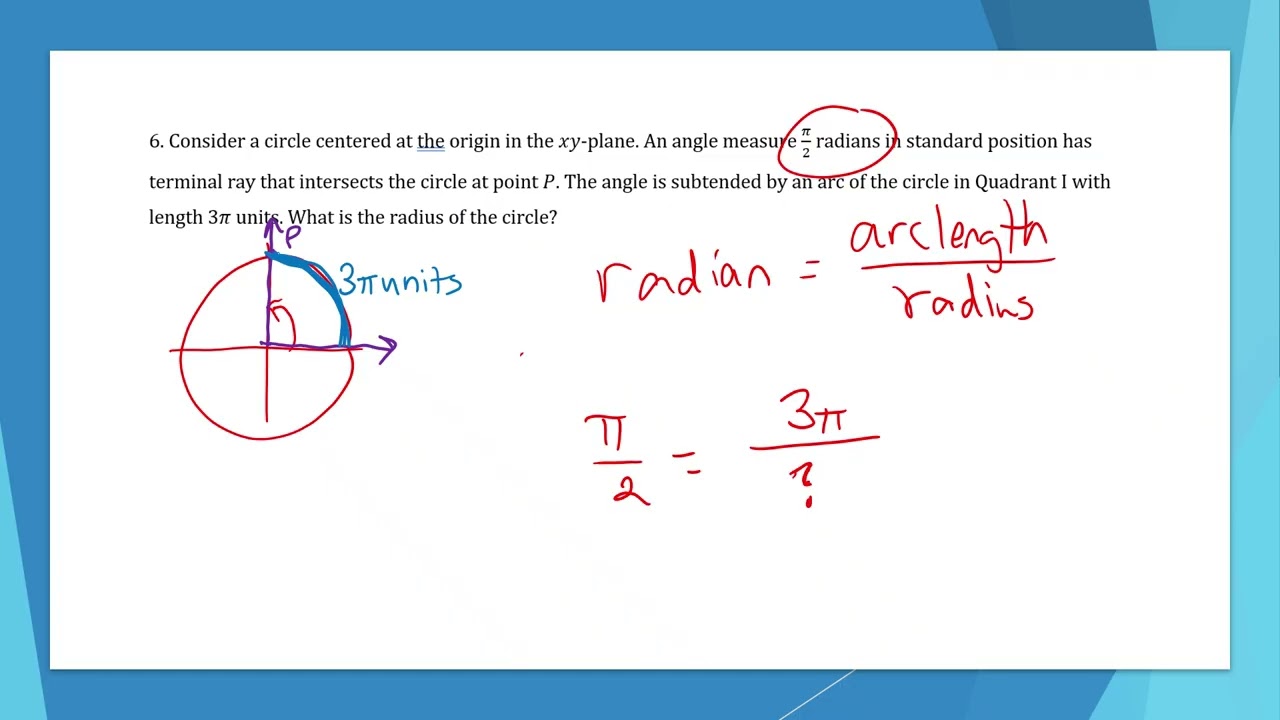 6. Consider a circle centered at the origin in the xy-plane. An angle measure π/2 radians in standard position has
terminal ray that intersects the circle at point P. The angle is subtended by an arc of the circle in Quadrant I with
length 3π units. What is the radius of the circle?
P
3π units
radian = arclength/radius
π/2 = 3π/?